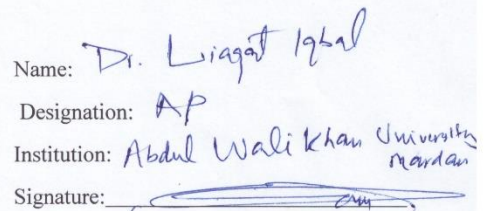 Name: Dr. Liaqat Iqbal
Designation: AP
Institution: Abdul Wali Khan University
Mardan
Signature: